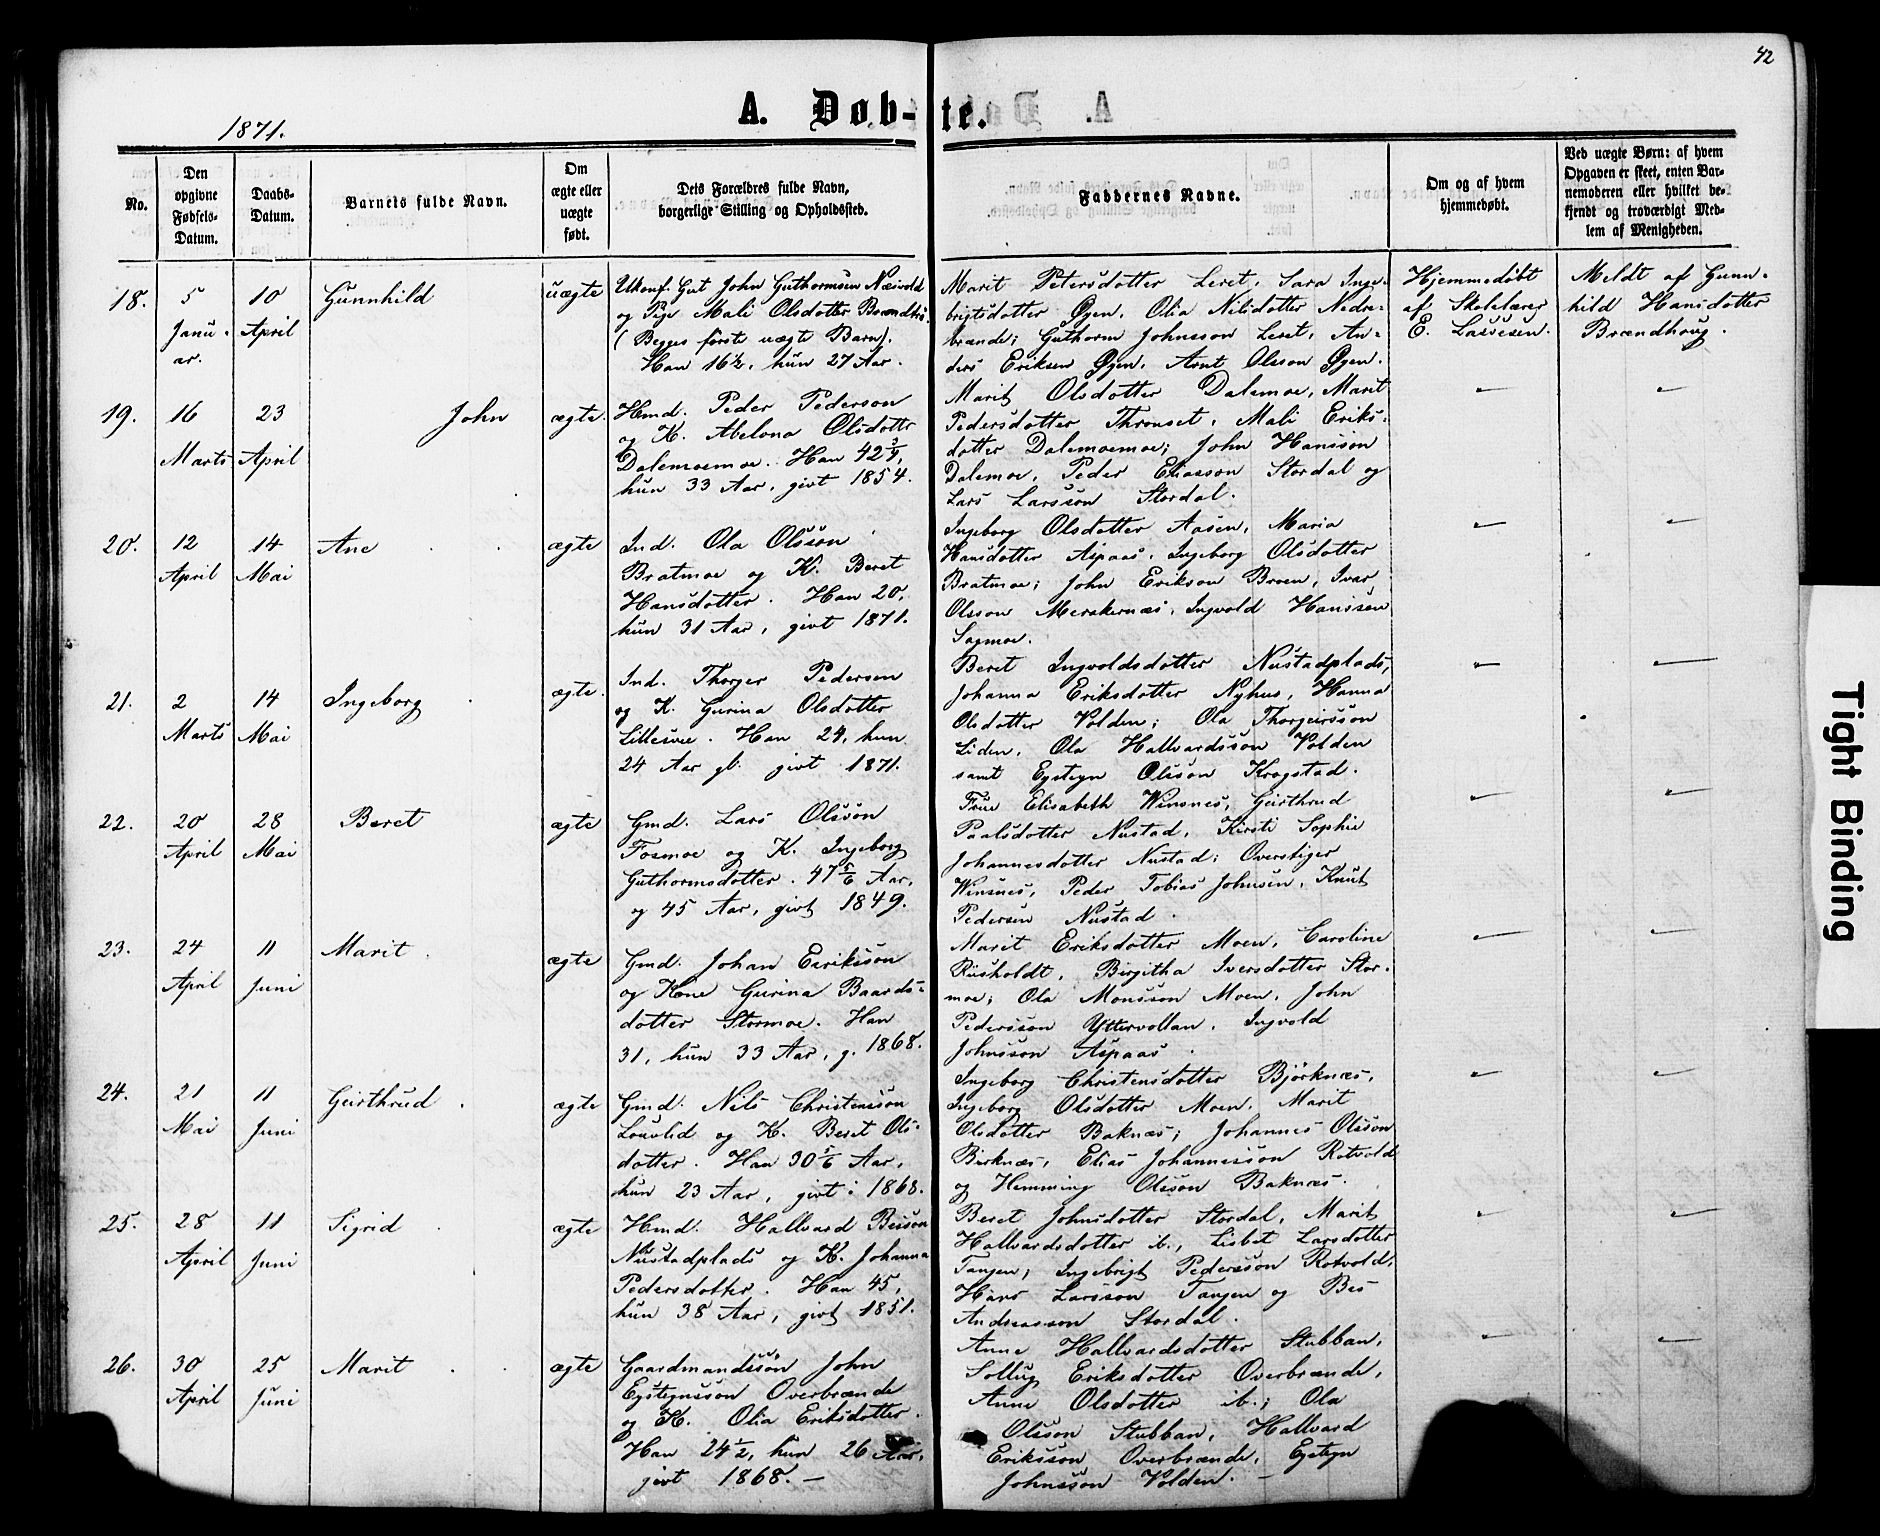 42
1871.
A. Døb-te.
No.
Den opgivne Fødsels-Datum.
Daabs-Datum.
Barnets fulde Navn.
Om ægte eller uægte født.
Dets Forældres fulde Navn, borgerlige Stilling og Opholdssted.
Faddernes Navne.
Om og af hvem hjemmedøbt.
Ved uægte Børn: af hvem Opgaven er skeet, enten Barnemoderen eller hvilket bekjendt og troværdigt Medlem af Menigheden.
18.
5 Janu-
ar.
10 April
Gunnhild
uægte
Ukonf. Gut John Guthormsen Næivold
og Pige Mali Olsdotter
(Begges første uægte Barn).
Han 16½, hun 27 Aar.
Marit Petersdotter Leret, Sara Inge-
brigtsdotter Øyen, Olia Nilsdotter Nedre-
brænde; Guthorm Johnsson Leret, An-
ders Eriksen Øyen, Arnt Olsson Øyen.
Hjemmedøbt
af Skolelærer
E. Lassesen.
Meldt af Gunn-
hild Hansdotter
Brændhoug.
19.
16
Marts
23
April
John
ægte.
Hmd. Peder Pederson
og K. Abelona Olsdotter
Dalemoemoe. Han 42 3/4,
hun 33 Aar, givt 1854.
Marit Olsdotter Dalemoe, Marit
Pedersdotter Thronset, Mali Eriks-
dotter Dalemoemoe; John Hansson
Dalemoe, Peder Eliasson Stordal og
Lars Larsson Stordal.
20.
12
April
14
Mai
Ane
ægte
Ind. Ola Olsson
Bratmoe og K. Beret
Hansdotter. Han 20,
hun 31 Aar, givt 1871.
Ingeborg Olsdotter Aasen, Maria
Hansdotter Aspaas, Ingeborg Olsdotter
Bratmoe; John Erikson Broen, Ivar
Olsson Merakernæs, Ingvold Hanssen
Sagmoe.
21.
2
Marts
14
Mai
Ingeborg
ægte.
Ind. Thorger Pedersen
og K. Gurina Olsdotter
Lillesvee. Han 24, hun
24 Aar gl. givt 1871.
Beret Ingvoldsdotter Nustadplads,
Johanna Eriksdotter Nyhus, Hanna
Olsdotter Volden; Ola Thorgeirsson
Liden, Ola Hallvardsson Volden
samt Eysteyn Olsson Krogstad.
22.
20
April
28
Mai
Beret
ægte
Gmd. Lars Olsson
Fosmoe og K. Ingeborg
Guthormsdotter. 47 5/6 Aar,
og 45 Aar, givt 1849.
Frue Elisabeth Winsnes, Geirthrud
Paalsdotter Nustad, Kirsti Sophie
Johannesdotter Nustad; Overstiger
Winsnes, Peder Tobias Johnsen, Knut
Pedersen Nustad.
23.
24
April
11
Juni
Marit
ægte
Gmd. Johan Eeriksson
og Kone Gurina Baards-
dotter Stormoe. Han
31, hun 33 Aar, g. 1868.
Marit Eriksdotter Moen, Caroline
Riisholdt, Birgitha Iversdotter Stor-
moe; Ola Monsson Moen, John
Pedersson Yttervollan, Ingvold
Johnsson Aspaas.
24.
21
Mai
11
Juni
Geirthrud
ægte
Gmd. Nils Christensson
og K. Beret Ols-
dotter. Han 30 5/6 Aar,
hun 23 Aar, givt i 1868.
Ingeborg Christensdotter Bjørknæs,
Ingeborg Olsdotter Moen, Marit
Olsdotter Baknæs; Johannes Olsson
Birknæs, Elias Johannesson Rotvold
og Hemming Olsson Baknæs.
25.
28
April
11
Juni
Sigrid
ægte
Hmd. Hallvard Bersson
Nustadplads og K. Johanna
Pedersdotter. Han 45,
hun 38 Aar, givt 1851.
Beret Johnsdotter Stordal, Marit
Hallvardsdotter ib., Lisbet Larsdotter
Tangen; Ingebrigt Pedersson Rotvold,
Hans Larsson Tangen og
Andreasson Stordal.
26.
30
April
25
Juni
Marit
ægte
Gaardmandssøn John
Eystegnsson Overbrænde
og K. Olia Eriksdotter.
Han 24 1/2, hun 26 Aar,
givt 1868. —
Anne Hallvardsdotter Stubban,
Sollug Eriksdotter Overbrænde,
Anne Olsdotter ib.; Ola
Olsson Stubban, Hallvard
Eriksson Overbrænde, Eystegn
Johnsson Volden. —
Tight Binding